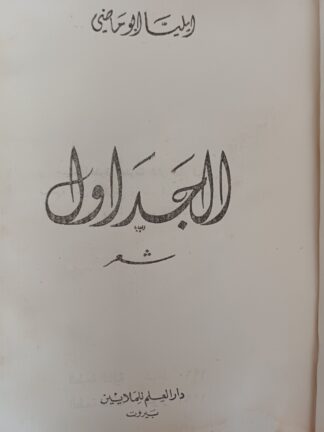 ايليّا ابو ماضي
الجَدَاول
شعر
دار العِلم للملايين
بيروت